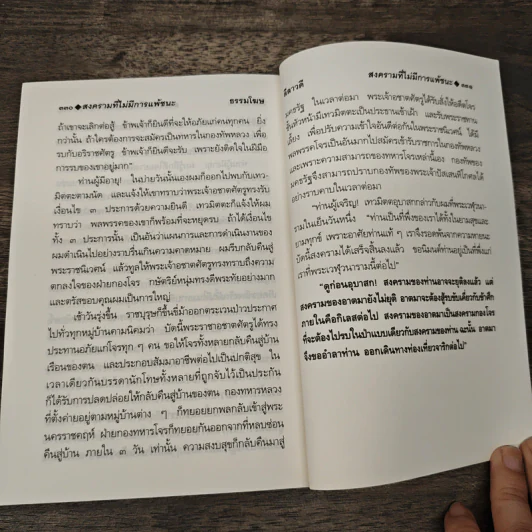 ๓๓๐ ◆ สงครามที่ไม่มีการแพ้ชนะ ธรรมโฆษ
ถ้าเขาจะเลิกต่อสู้ ข้าพเจ้าก็ยินดีที่จะให้อภัยแก่คนทุกคน ยิ่ง
กว่านั้น ถ้าใครต้องการจะสมัครเป็นทหารในกองทัพหลวง เพื่อ
รบกับอริราชศัตรู ข้าพเจ้าก็ยินดีจะรับ เพราะยังติดใจในฝีมือ
การรบของเขาอยู่มาก"
ท่านผู้มีอายุ! ในบ่ายวันนั้นเองผมก็ออกไปพบกับเทว-
มิตตะตามนัด และแจ้งให้เขาทราบว่าพระเจ้าอชาตศัตรูทรงรับ
เงื่อนไข ๓ ประการด้วยความยินดี เทวมิตตะก็แจ้งให้ผม
ทราบว่า พลพรรคของเขาก็พร้อมที่จะหยุดรบ ถ้าได้เงื่อนไข
ทั้ง ๓ ประการนั้น เป็นอันว่าแผนการและการดำเนินงานของ
ผมดำเนินไปอย่างราบรื่นเกินความคาดหมาย ผมรีบกลับคืนสู่
พระราชนิเวศน์ แล้วทูลให้พระเจ้าอชาตศัตรูทรงทราบถึงความ
ตกลงใจของฝ่ายกองโจร กษัตริย์หนุ่มทรงดีพระทัยอย่างมาก
และตรัสขอบคุณผมเป็นการใหญ่
เช้าวันรุ่งขึ้น ราชบุรุษก็ขึ้นขี่ม้าออกตระเวนป่าวประกาศ
ไปทั่วทุกหมู่บ้านคามนิคมว่า บัดนี้พระราชาอชาตศัตรูได้ทรง
ประทานอภัยแก่โจรทุก ๆ คน ขอให้โจรทั้งหลายกลับคืนสู่บ้าน
เรือนของตน และประกอบสัมมาอาชีพต่อไปเป็นปกติสุข ใน
เวลาเดียวกันบรรดานักโทษทั้งหลายที่ถูกจับไว้เป็นประกัน
ก็ได้รับการปลดปล่อยให้กลับคืนสู่บ้านของตน กองทหารหลวง
ที่ตั้งค่ายอยู่ตามหมู่บ้านต่าง ๆ ก็ทยอยยกพลกลับเข้าสู่พระ
นครราชคฤห์ ฝ่ายกองทหารโจรก็ทยอยกันออกจากที่หลบซ่อน
คืนสู่บ้าน ภายใน ๓ วัน เท่านั้น ความสงบสุขก็กลับคืนมาสู่
ลีลาวดี สงครามที่ไม่มีการแพ้ชนะ ◆ ๓๓๑
มคธรัฐ ในเวลาต่อมา พระเจ้าอชาตศัตรูได้รับสั่งให้อดีตโจร
ชั้นหัวหน้ามีเทวมิตตะเป็นประธานเข้าเฝ้า และรับพระราชทาน
เลี้ยง เพื่อปรับความเข้าใจอันดีต่อกันในพระราชนิเวศน์ ได้มี
พลพรรคโจรเป็นอันมากไปสมัครเข้ารับราชการในกองทัพหลวง
และเพราะความสามารถของทหารโจรเหล่านี้เอง กองทัพของ
มคธรัฐจึงสามารถปราบกองทัพของพระเจ้าปัสเสนทิโกศลได้
อย่างราบคาบในเวลาต่อมา
"ท่านผู้เจริญ! เทวมิตตอุบาสกกล่าวกับผมที่พระเวฬุวนา-
รามในเย็นวันหนึ่ง "ท่านเป็นที่พึ่งของเราได้ทั้งในยามสุขและ
ยามทุกข์ เพราะอาศัยท่านแท้ ๆ เราจึงรอดพ้นจากความหายนะ
บัดนี้สงครามได้เสร็จสิ้นลงแล้ว ขอนิมนต์ท่านอยู่เป็นที่พึ่งแก่
เราที่พระเวฬุวนารามนี้ต่อไป"
"ดูก่อนอุบาสก! สงครามของท่านอาจจะยุติลงแล้ว แต่
สงครามของอาตมายังไม่ยุติ อาตมาจะต้องสู้รบขับเคี่ยวกับข้าศึก
ภายในคือกิเลสต่อไป สงครามของอาตมาเป็นสงครามกองโจร
ที่จะต้องไปรบในป่าแบบเดียวกับสงครามของท่าน ฉะนั้น อาตมา
จึงขออำลาท่าน ออกเดินทางท่องเที่ยวจาริกต่อไป"